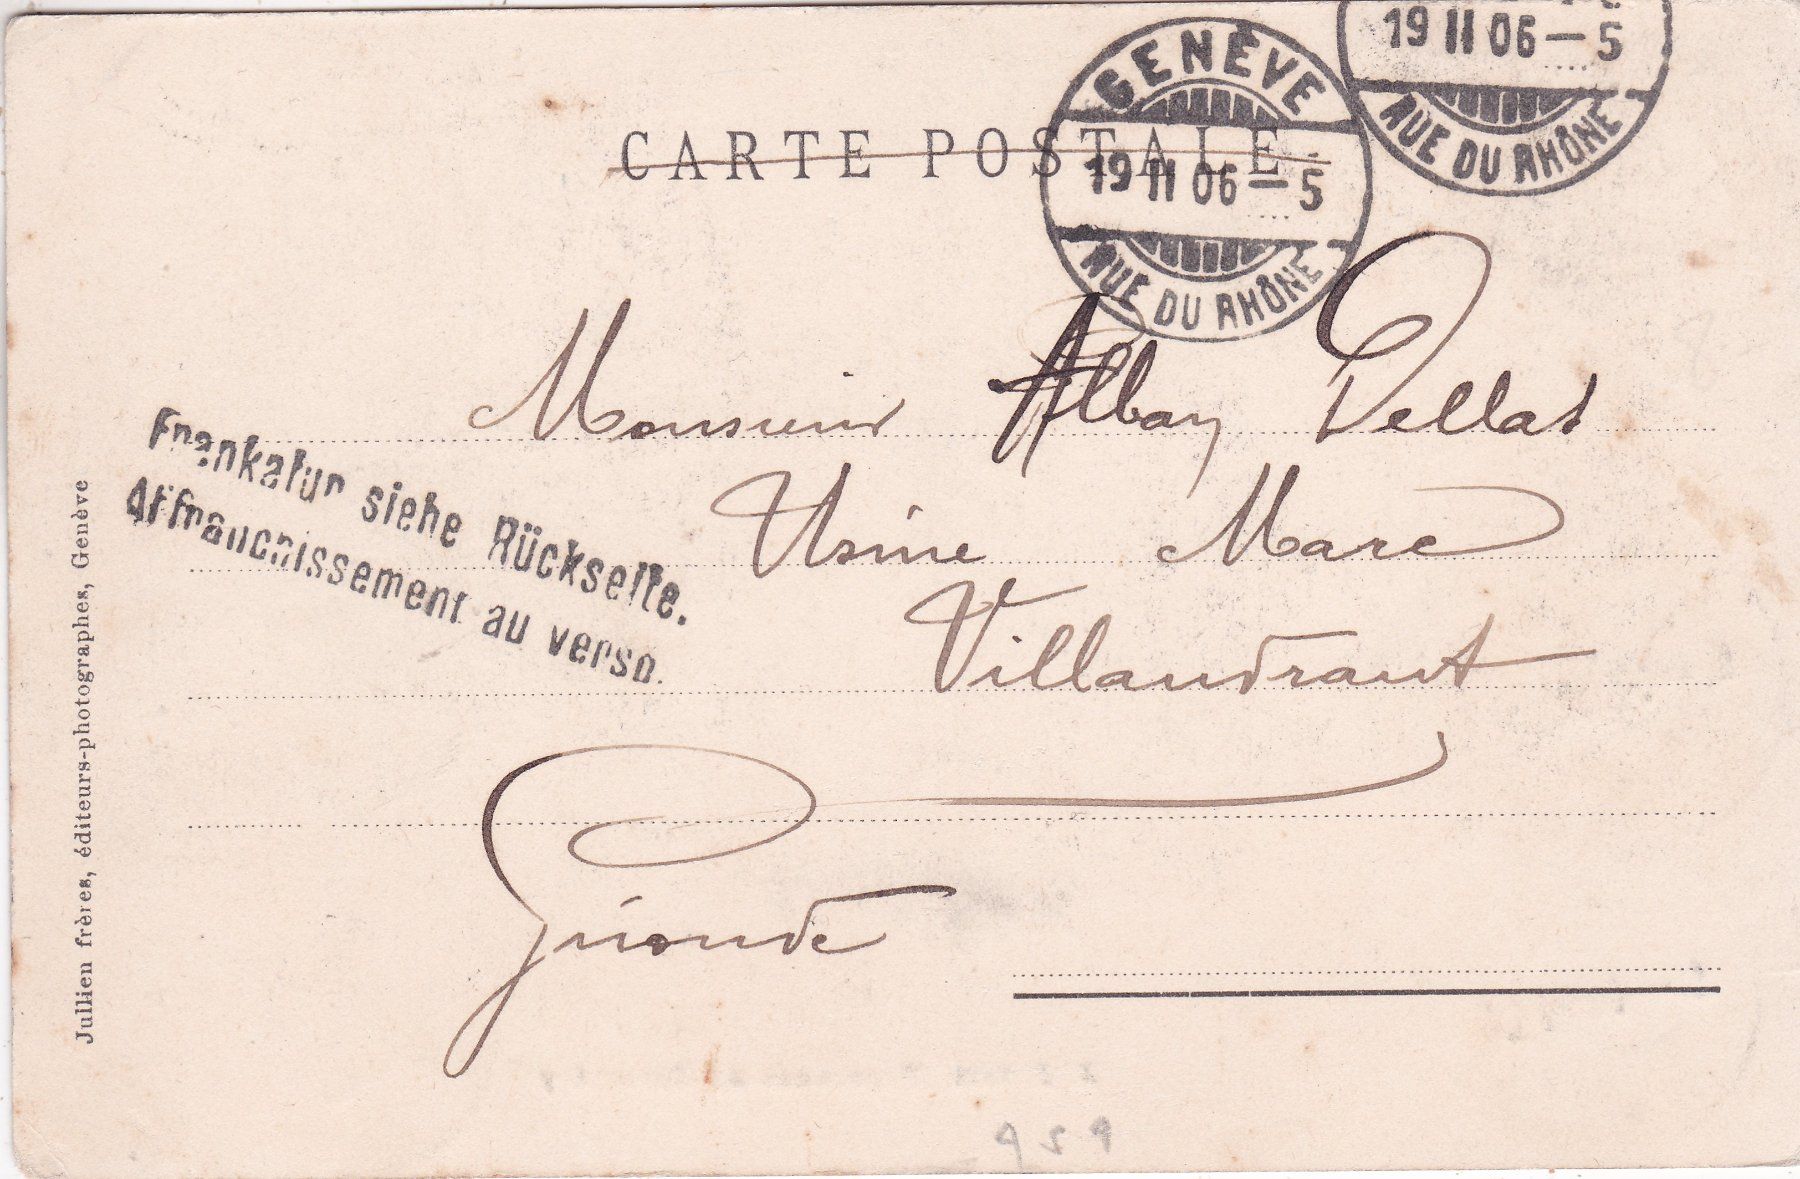 CARTE POSTALE
GENÈVE
19 II 06 – 5
RUE DU RHÔNE
19 II 06 – 5
RUE DU RHÔNE
Monsieur Alban Dellas
Usine Marc
Villandraut
Gironde
Frankatur siehe Rückseite.
Affranchissement au verso.
Julien frères, éditeurs-photographes, Genève